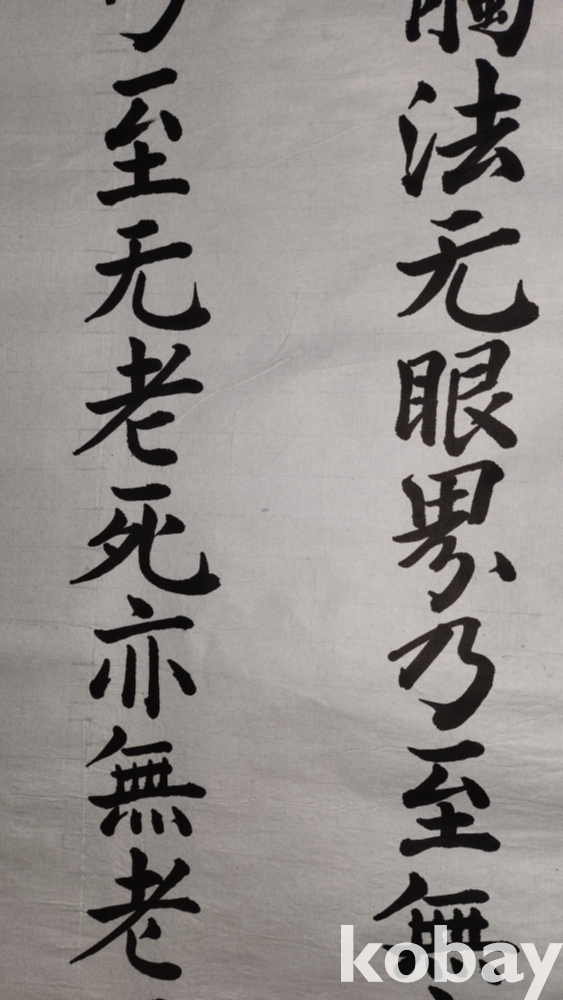 法无眼界乃至無
至无老死亦無老
kobay